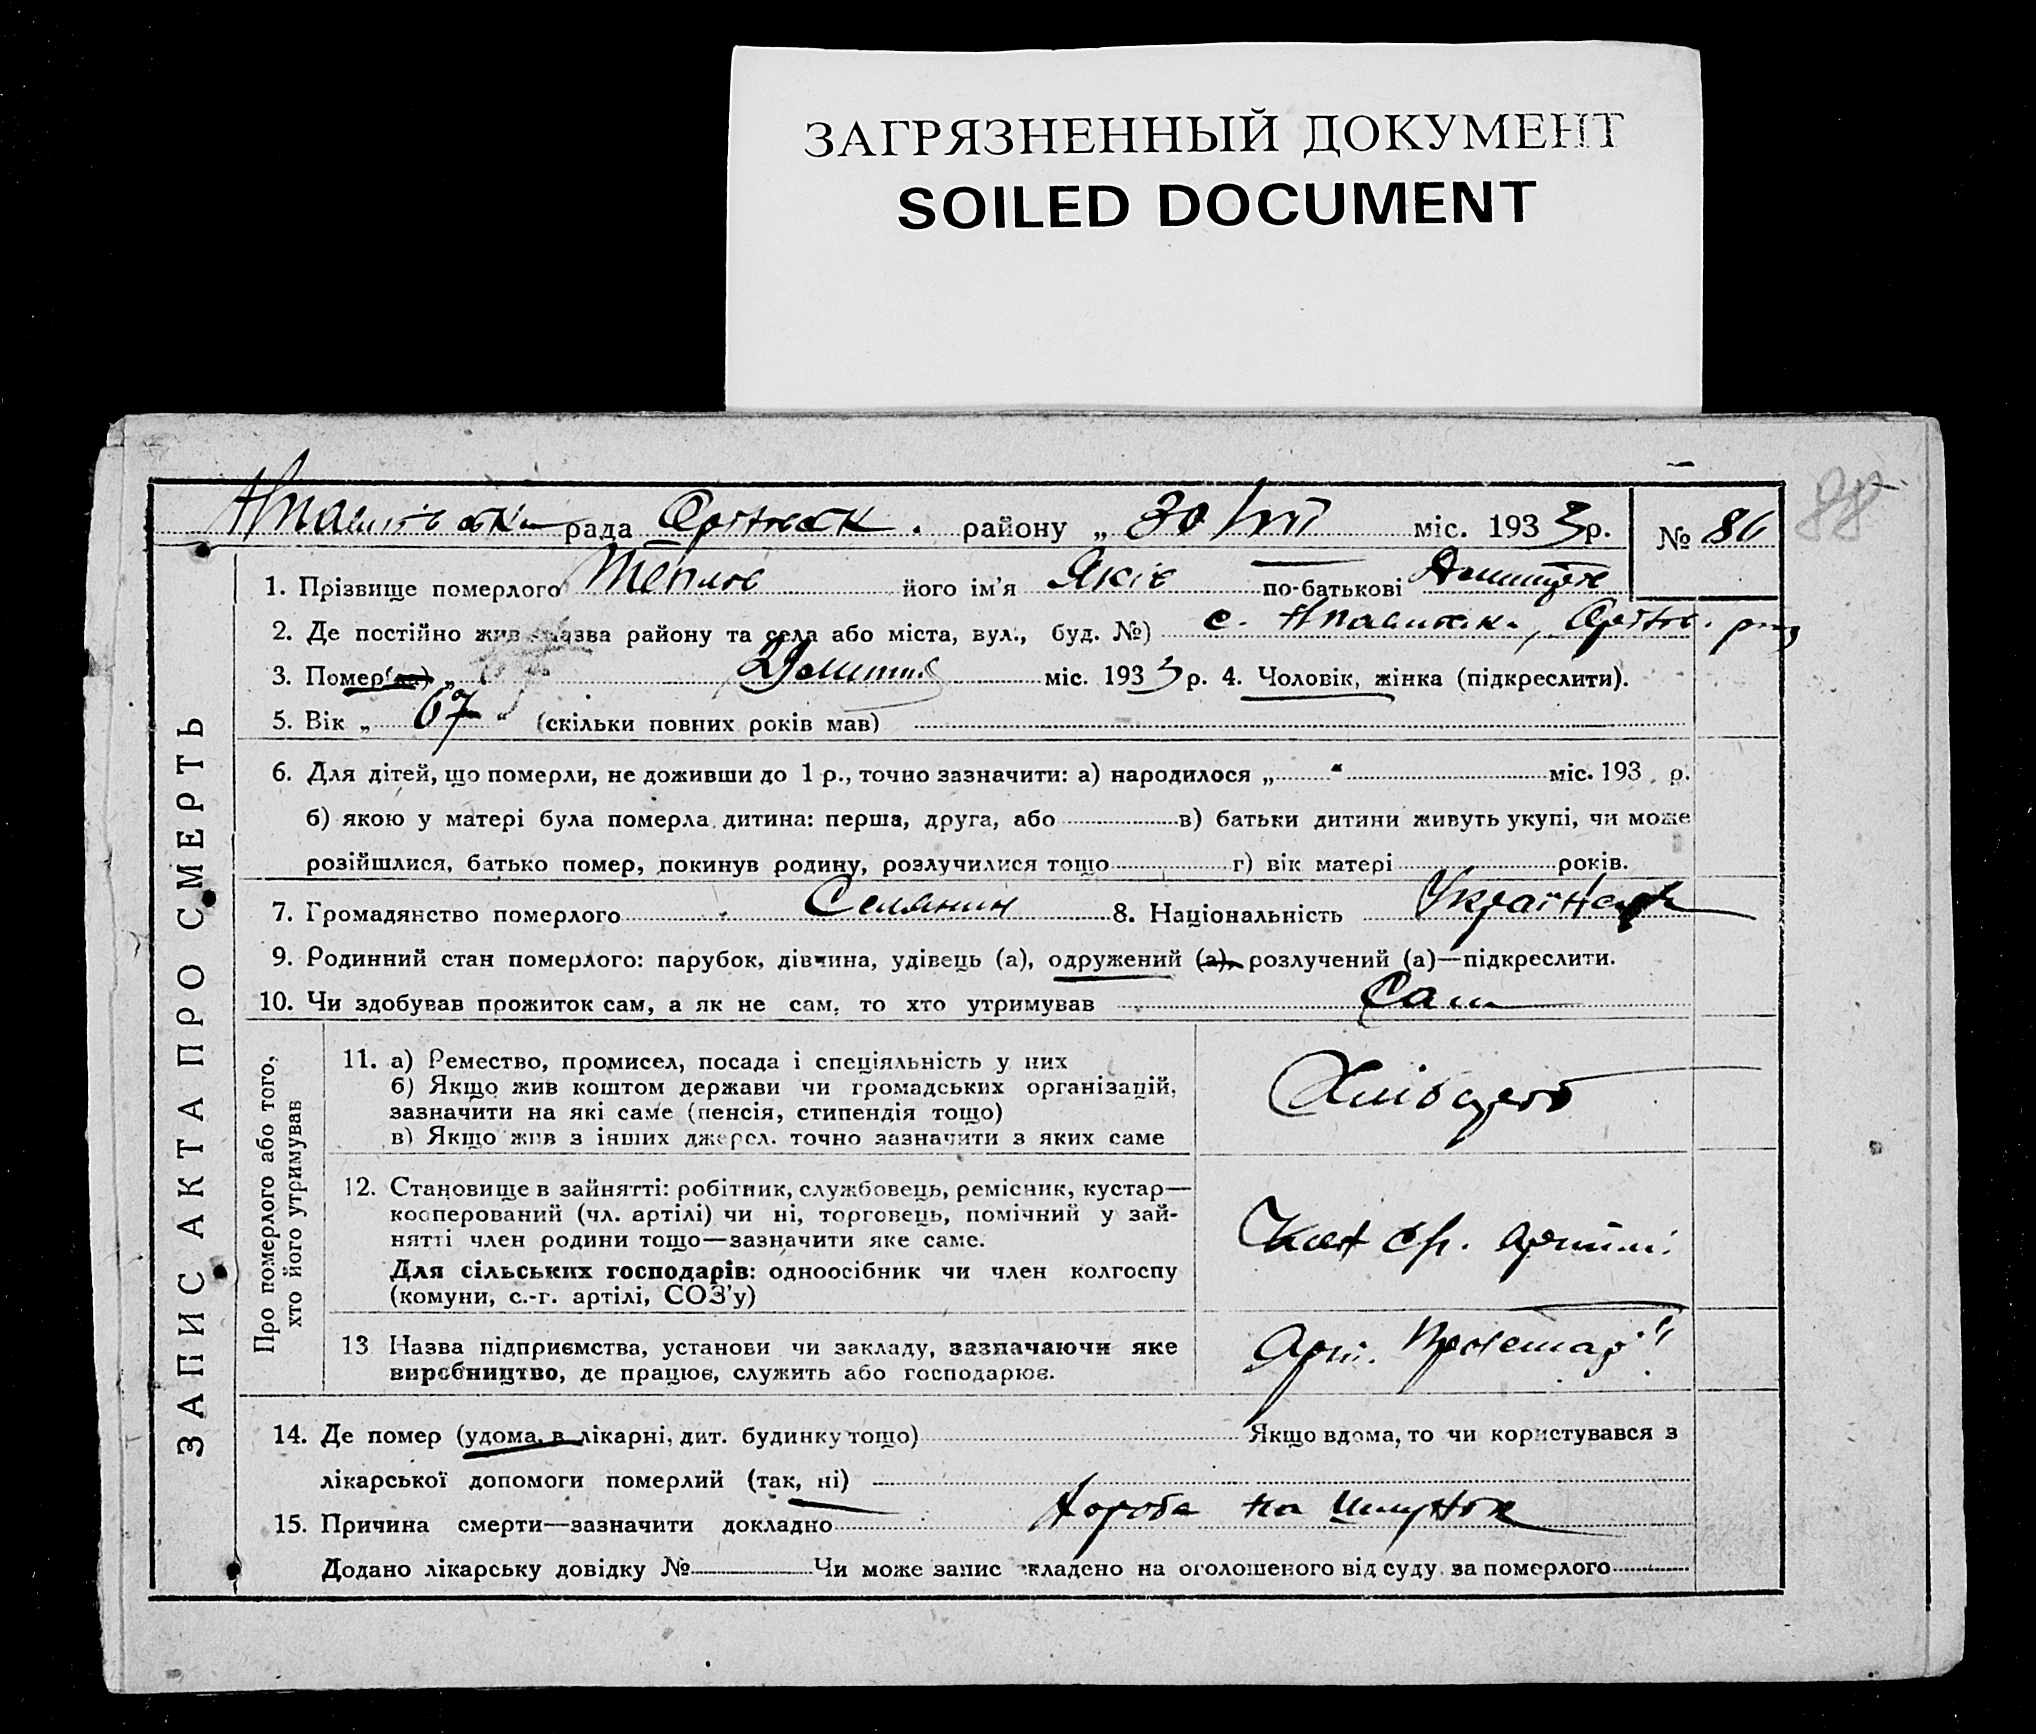 ЗАГРЯЗНЕННЫЙ ДОКУМЕНТ
SOILED DOCUMENT
88
рада району „30/VII міс. 1933 р. № 86
ЗАПИС АКТА ПРО СМЕРТЬ
1. Прізвище померлого Теплов його ім'я Яків по-батькові
2. Де постійно жив назва району та села або міста, вул., буд. №) с.
3. Помер(ла) „ міс. 1933 р. 4. Чоловік, жінка (підкреслити).
5. Вік „67" (скільки повних років мав)
6. Для дітей, що померли, не доживши до 1 р., точно зазначити: а) народилося „ " міс. 193 р.
б) якою у матері була померла дитина: перша, друга, або в) батьки дитини живуть укупі, чи може
розійшлися, батько помер, покинув родину, розлучилися тощо г) вік матері років.
7. Громадянство померлого Селянин 8. Національність
9. Родинний стан померлого: парубок, дівчина, удівець (а), одружений (а), розлучений (а)—підкреслити.
10. Чи здобував прожиток сам, а як не сам, то хто утримував Сам
Про померлого або того,
хто його утримував
11. а) Ремество, промисел, посада і спеціяльність у них
б) Якщо жив коштом держави чи громадських організацій,
зазначити на які саме (пенсія, стипендія тощо)
в) Якщо жив з інших джерел. точно зазначити з яких саме
Хлібороб
12. Становище в зайнятті: робітник, службовець, ремісник, кустар—
кооперований (чл. артілі) чи ні, торговець, помічний у зай-
нятті член родини тощо—зазначити яке саме.
Для сільських господарів: одноосібник чи член колгоспу
(комуни, с.-г. артілі, СОЗ'у)
артілі
13 Назва підприємства, установи чи закладу, зазначаючи яке
виробництво, де працює, служить або господарює.
Арт. Пролетар"
14. Де помер (удома, в лікарні, дит. будинку тощо) Якщо вдома, то чи користувався з
лікарської допомоги померлий (так, ні)
15. Причина смерти—зазначити докладно Хороба на шлунок
Додано лікарську довідку № Чи може запис складено на оголошеного від суду за померлого